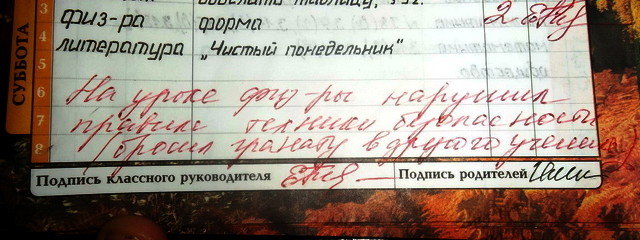 3
4
5
6
7
8
СУББОТА
таблицу,
физ-ра форма 2
литература „Чистый понедельник"
На уроке физ-ры нарушил
правила техники безопасности
бросил гранату в другого ученика
Подпись классного руководителя Подпись родителей